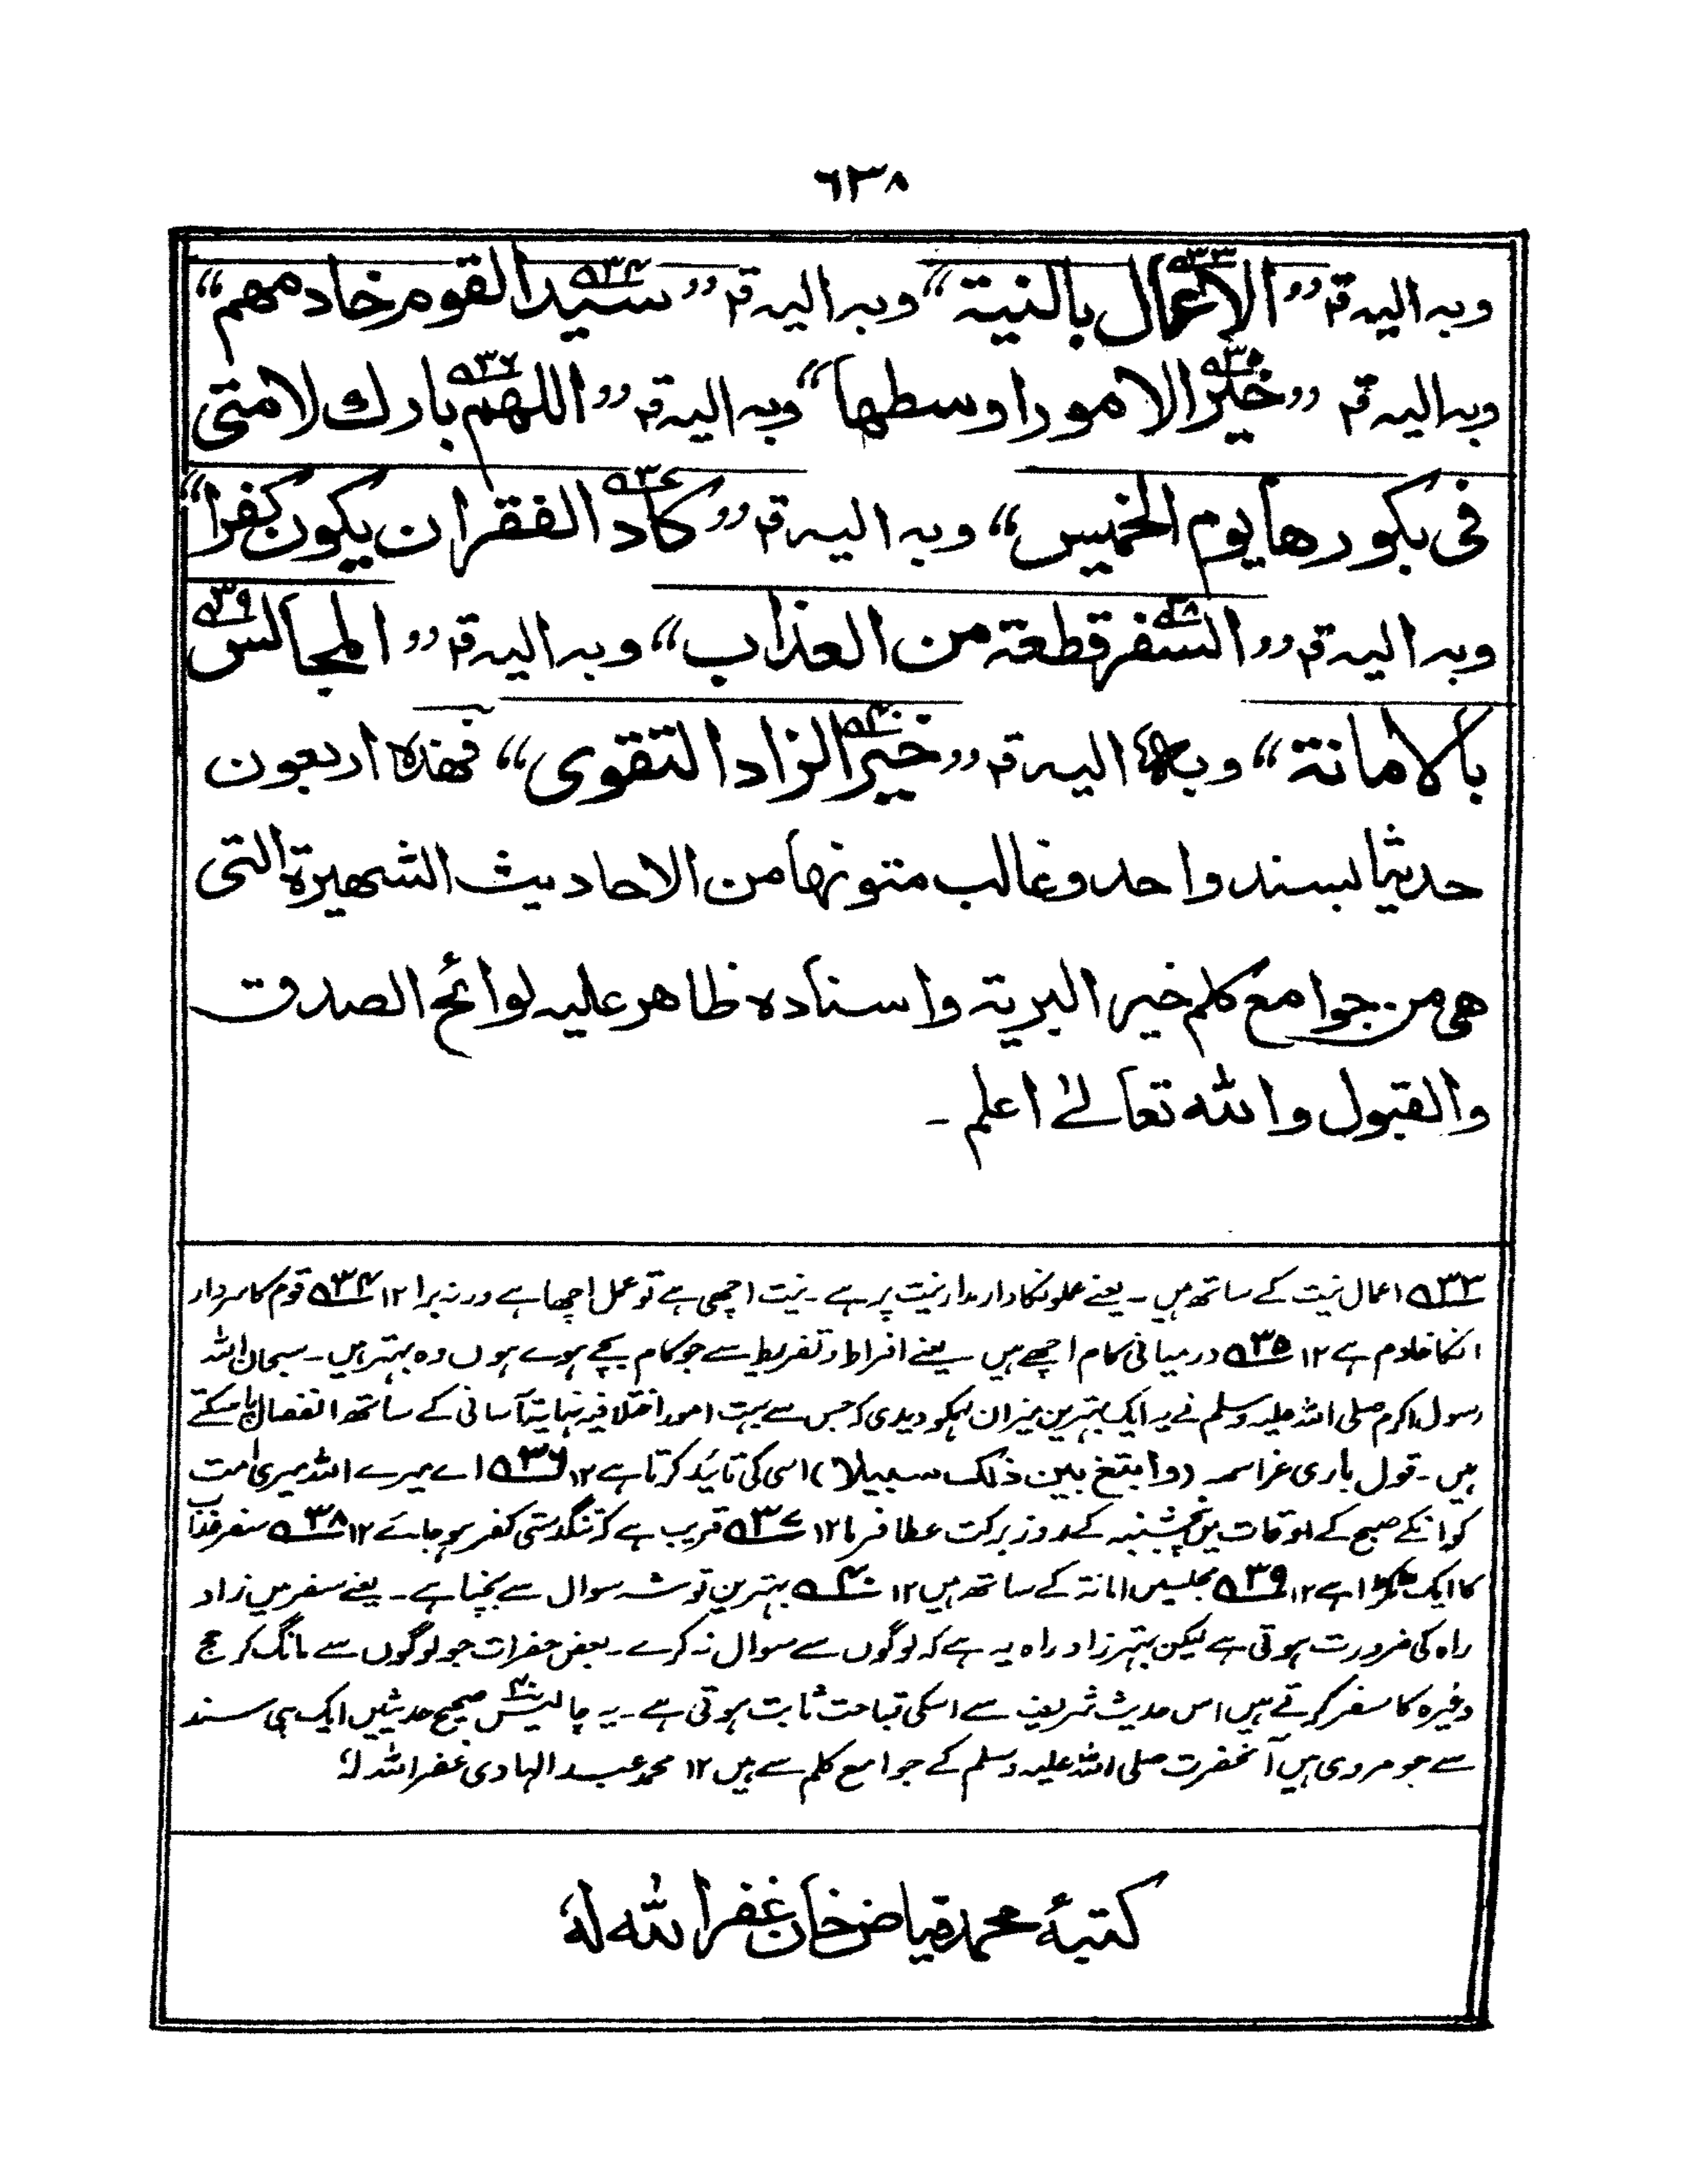 ٦٣٨
وبه اليه قم ”الاعمال بالنية“ وبه اليه قم ”سيد القوم خادمهم“
وبه اليه قم ”خير الامور اوسطها“ وبه اليه قم ”اللهم بارك لامتى
فى بكورها يوم الخميس“ وبه اليه قم ”كاد الفقر ان يكون كفرا“
وبه اليه قم ”السفر قطعة من العذاب“ وبه اليه قم ”المجالس
بالامانة“ وبه اليه قم ”خير الزاد التقوى“ فهذه اربعون
حديثا بسند واحد وغالب متونها من الاحاديث الشهيرة التى
هى من جوامع كلم خير البرية واسناده ظاهر عليه لوائح الصدق
والقبول والله تعالىٰ اعلم ۔
۳۳؎ اعمال نیت کے ساتھ ہیں ۔ یعنے عملونکا دارمدار نیت پر ہے ۔ نیت اچھی ہے تو عمل اچھا ہے ورنہ برا ۱۲ ۳۴؎ قوم کا سردار
انکا خادم ہے ۱۲ ۳۵؎ درمیانی کام اچھے ہیں یعنے افراط وتفریط سے جو کام بچے ہوے ہوں وہ بہتر ہیں ۔ سبحان الله
رسول اکرم صلی الله علیہ وسلم نے یہ ایک بہترین میزان ہمکو دیدی کہ جس سے بہت امور اختلافیہ نہایت آسانی کے ساتھ انفصال پا سکتے
ہیں ۔ قول باری عز اسمہ (وابتغ بین ذلک سبیلا) اسی کی تائید کرتا ہے ۱۲ ۳۶؎ اے میرے الله میری امت
کو انکے صبح کے اوقات میں پنجشنبہ کے روز برکت عطا فرما ۱۲ ۳۷؎ قریب ہے کہ تنگدستی کفر ہو جائے ۱۲ ۳۸؎ سفر عذاب
کا ایک ٹکڑا ہے ۱۲ ۳۹؎ مجلسیں امانۃ کے ساتھ ہیں ۱۲ ۴۰؎ بہترین توشہ سوال سے بچنا ہے ۔ یعنے سفر میں زاد
راہ کی ضرورت ہوتی ہے لیکن بہتر زاد راہ یہ ہے کہ لوگوں سے سوال نہ کرے ۔ بعض حضرات جو لوگوں سے مانگ کر حج
وغیرہ کا سفر کرتے ہیں اس حدیث شریف سے اسکی قباحت ثابت ہوتی ہے ۔ یہ چالیس ۴۰ صحیح حدیثیں ایک ہی سند
سے جو مروی ہیں آنحضرت صلی الله علیہ وسلم کے جوامع کلم سے ہیں ۱۲ محمد عبد الہادی غفر الله لہٗ
كتبهٗ محمد فياض خان غفر الله لهٗ